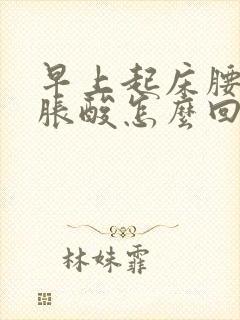 早上起床腰
脹酸怎麼回
林妹霏